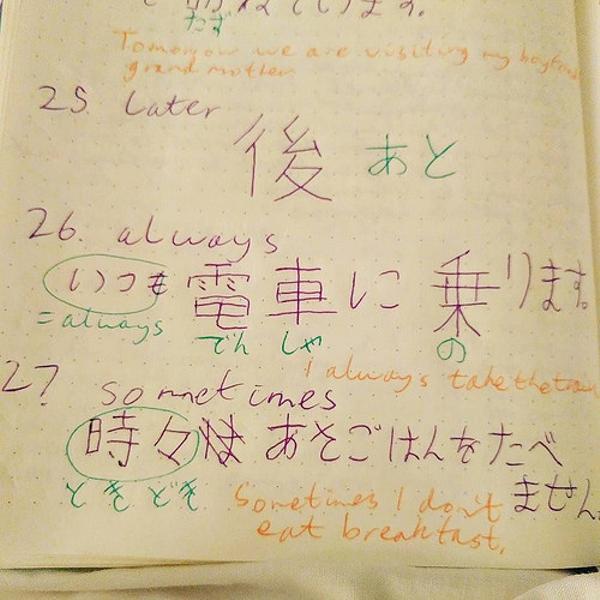 訪ねています。
たず
Tomorrow we are visiting my
grand mother
25. Later
後 あと
26. always
いつも電車に乗ります。
= always でんしゃ の
I always take the train
27 sometimes
時々 あそごはんをたべ
ません
ときどき Sometimes I don't
eat breakfast.